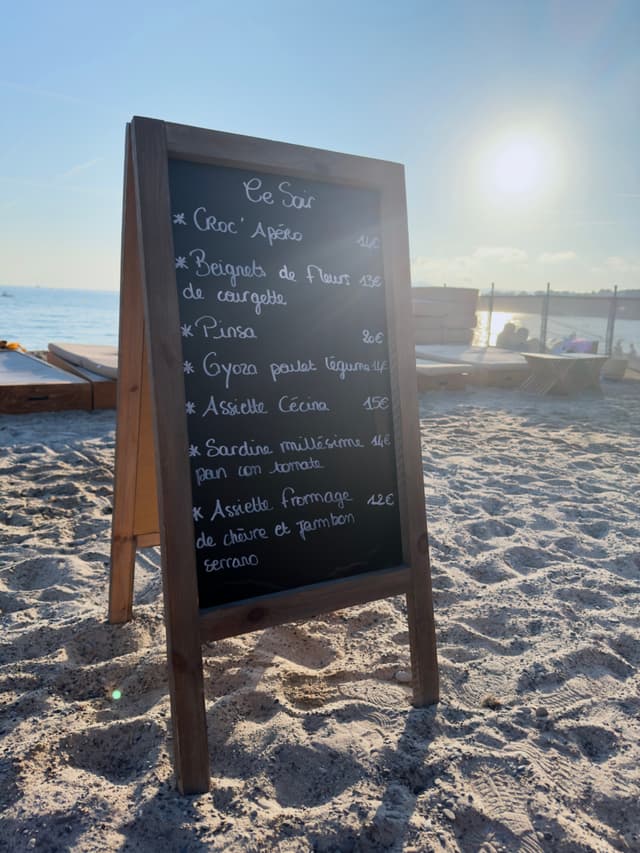 Ce Soir
* Croc' Apéro 14€
* Beignets de Fleurs 13€
de courgette
* Pinsa 20€
* Gyoza poulet légume 14€
* Assiette Cécina 15€
* Sardine millésime 14€
pan con tomate
* Assiette fromage 12€
de chèvre et jambon
serrano